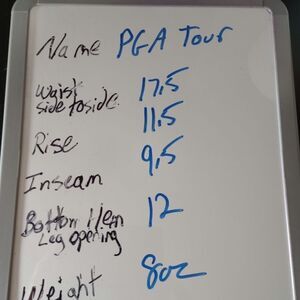 Name PGA Tour
Waist 17.5
side to side
Rise 11.5
Inseam 9.5
Bottom Hem 12
Leg opening
Weight 8oz